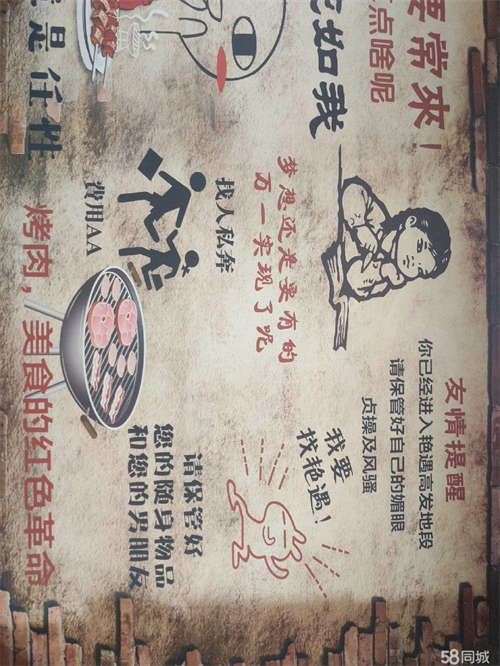 要常來!
点啥呢
如我
是任性
友情提醒
你已经进入艳遇高发地段
请保管好自己的媚眼
贞操及风骚
梦想还是要有的
万一实现了呢
我要
找艳遇!
找人私奔
費用AA
请保管好
您的随身物品
和您的男朋友
烤肉，美食的红色革命
58同城